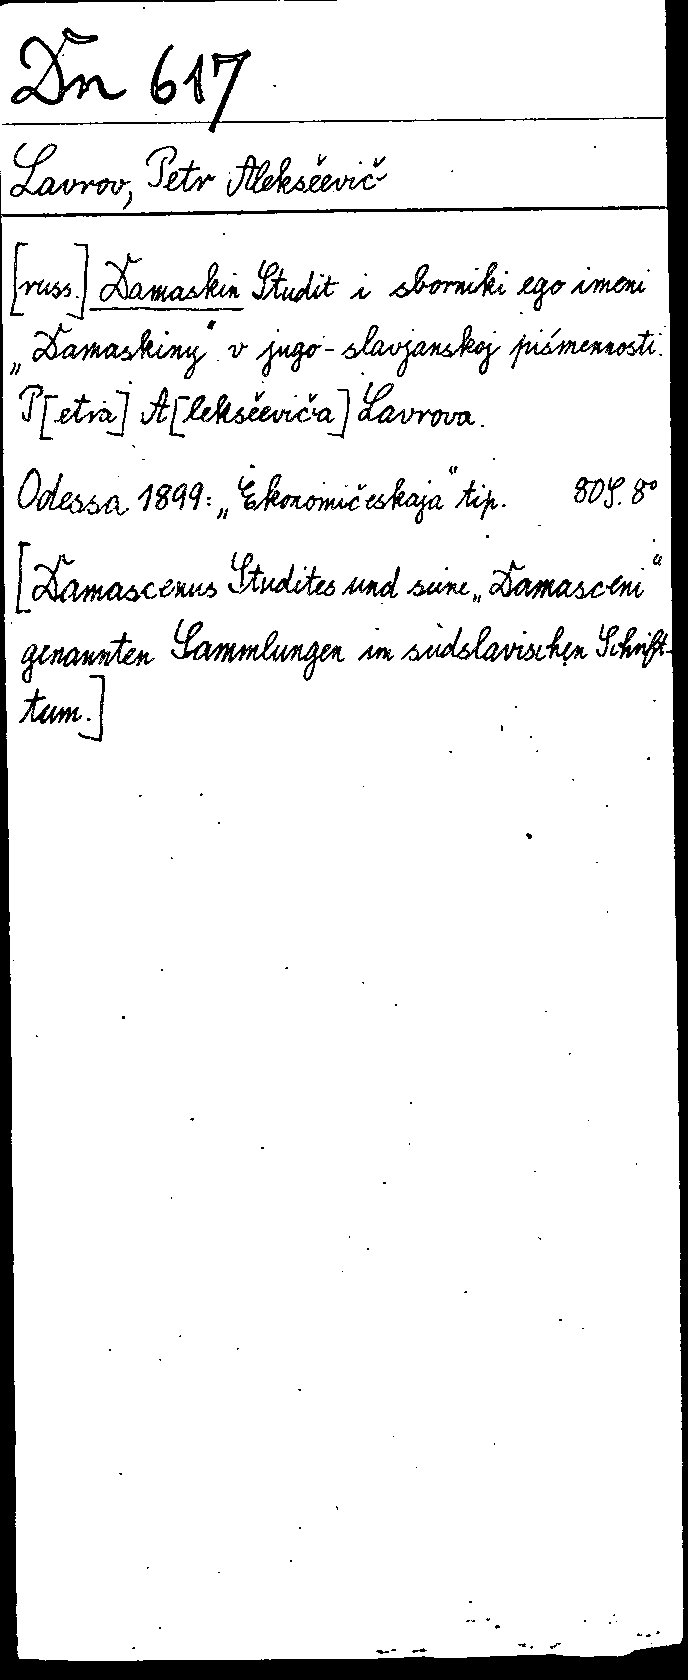 Dn 617
Lavrov, Petr Aleksěevič
[russ.] Damaskin Studit i sborniki ego imeni
„Damaskiny“ v jugo-slavjanskoj piśmennosti.
P[etra] A[leksěeviča] Lavrova.
Odessa 1899: „Ėkonomičeskaja“ tip. 80 S. 8°
[Damascenus Studites und seine „Damasceni“
genannten Sammlungen im südslavischen Schrift-
tum.]